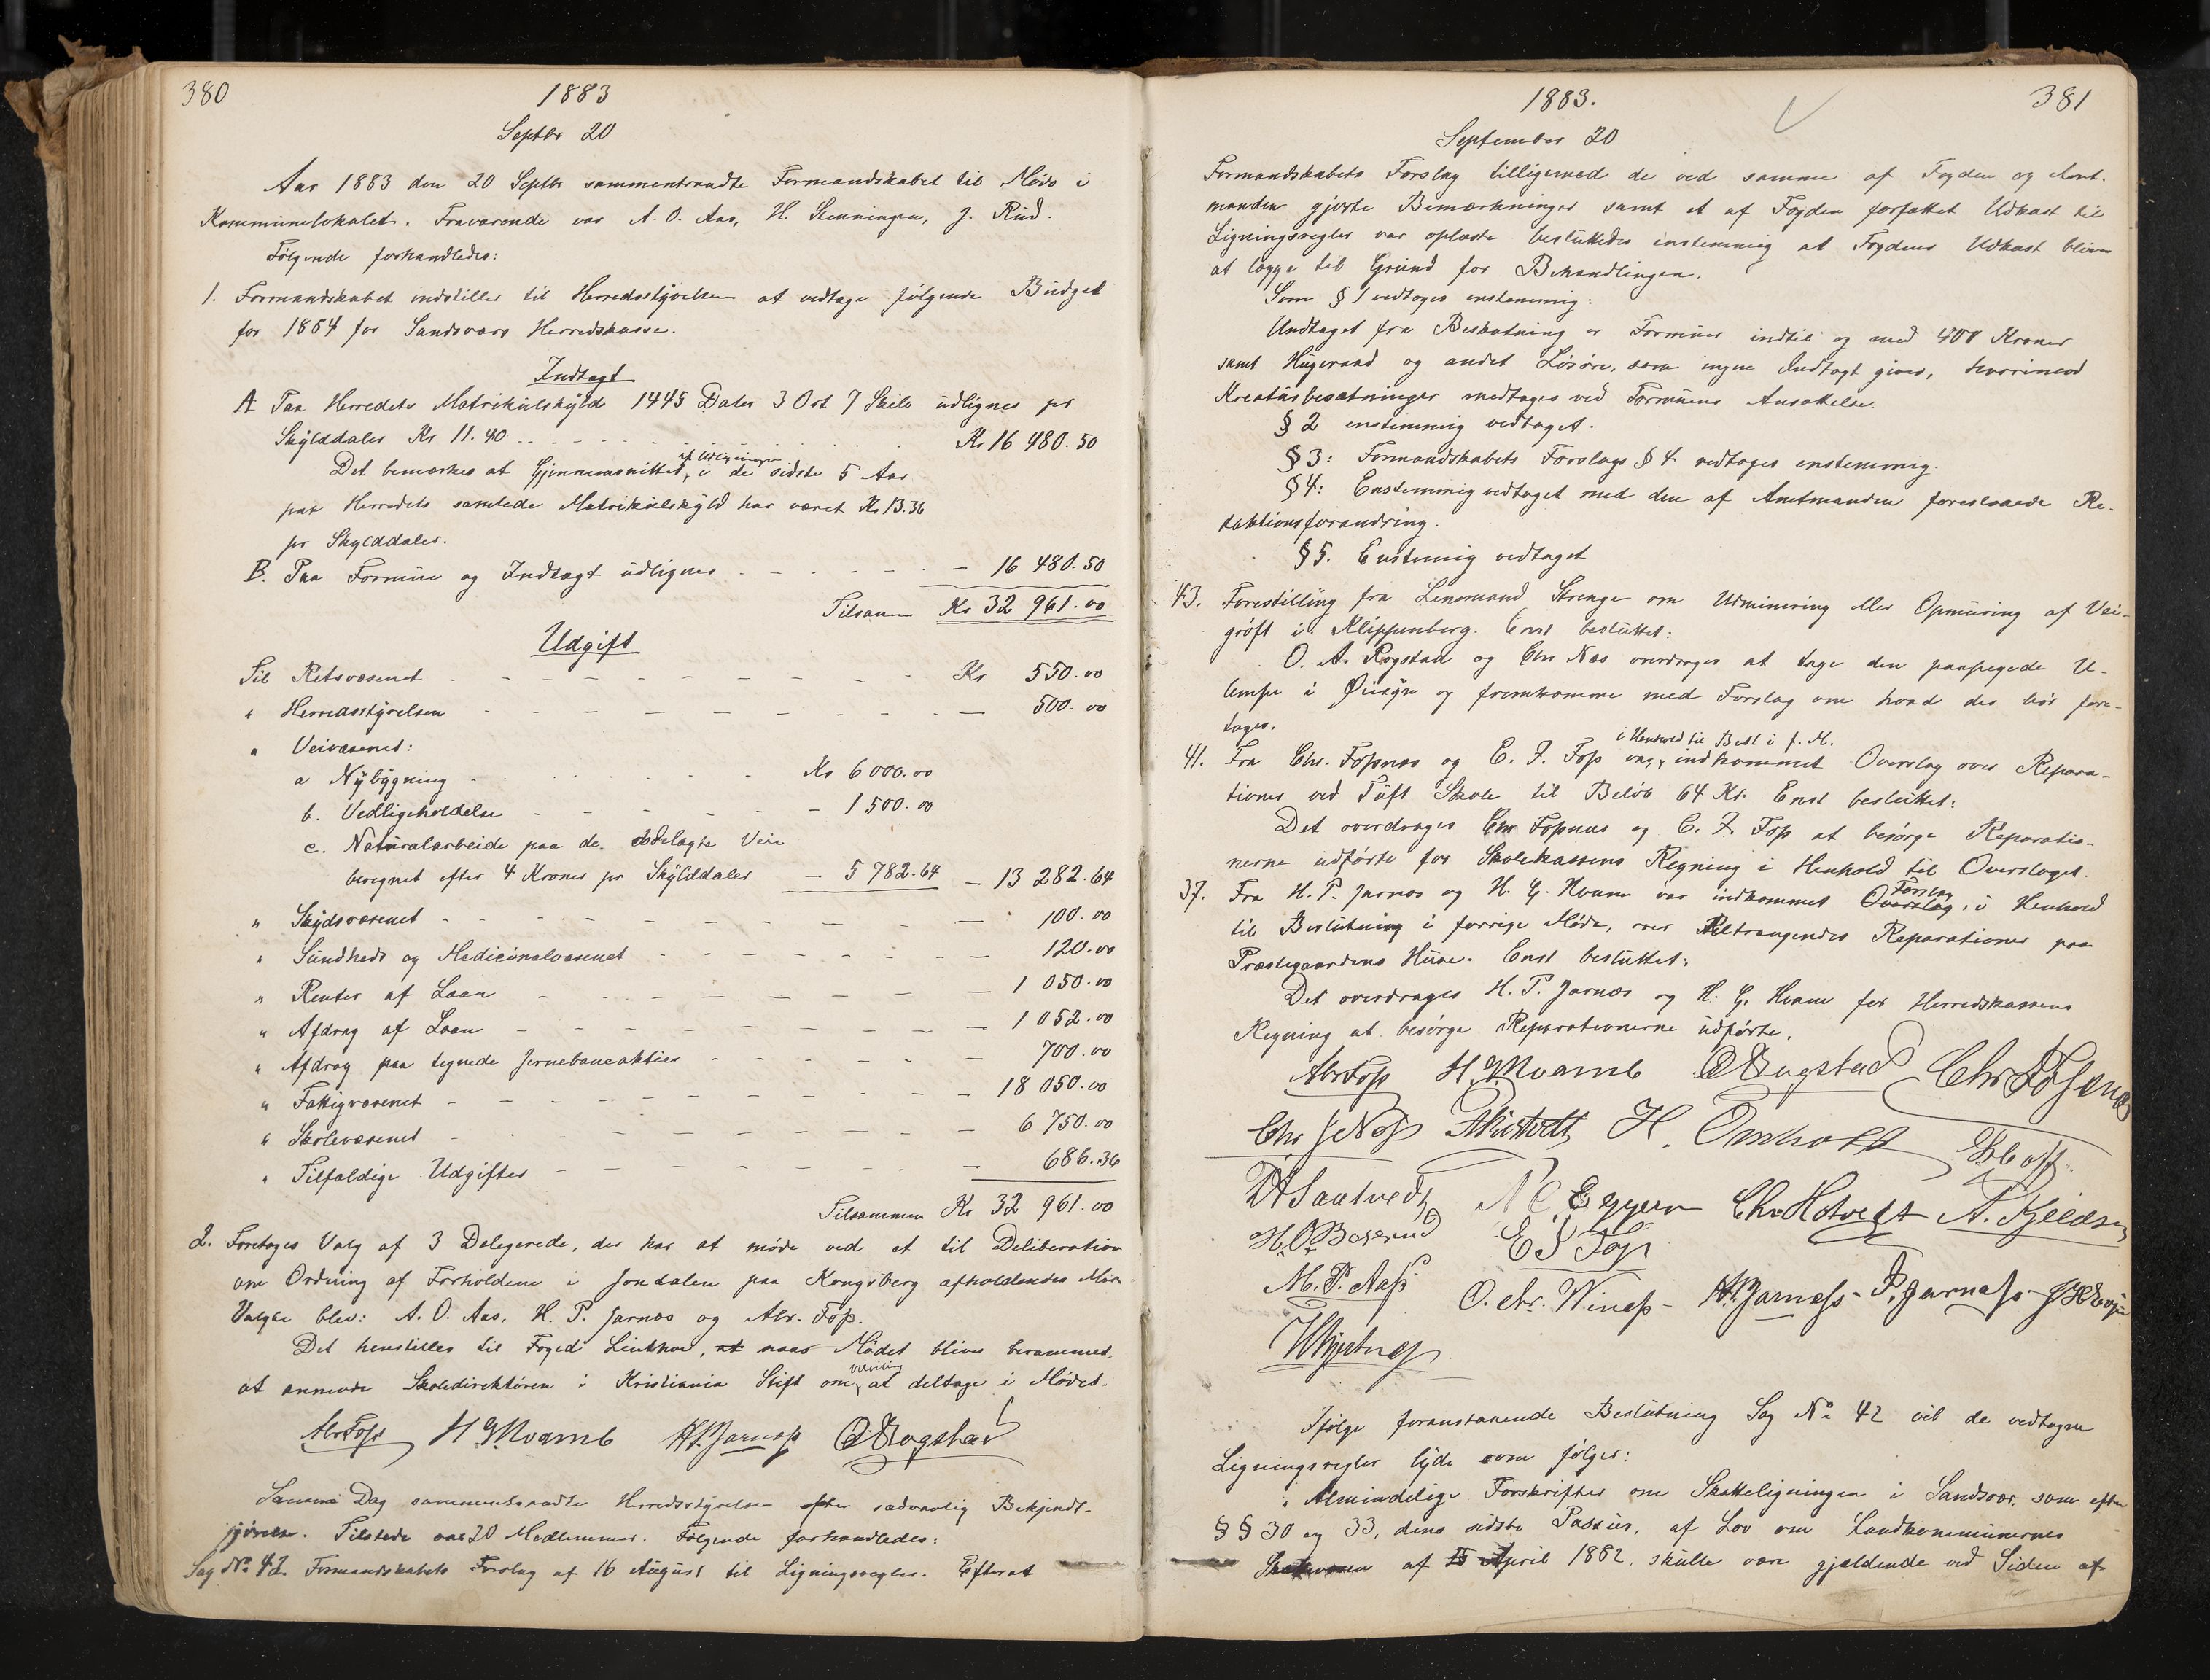 380
1883
Septbr 20
Aar 1883 den 20 Septbr sammentraadte Formandskabet til Møde i
Kommunelokalet. Fraværende var A. O. Aas, H. Stenningen, J. Rud.
Følgende forhandledes:
1. Formandskabet indstiller til Herredsstyrelsen at vedtage følgende Budget
for 1884 for Sandsværs Herredskasse.
Indtægt
A Paa Herredets Matrikulskyld 1445 Daler 3 Ort 7 Skill udlignes pr
Skylddaler Kr 11.40 Kr 16 480.50
Det bemærkes at Gjennemsnittet af Udligningen i de sidste 5 Aar
paa Herredets samlede Matrikulskyld har været Kr 13.36
pr Skylddaler.
B. Paa Formue og Indtægt udlignes — 16 480.50
Tilsamm Kr 32 961.00
Udgift
Til Retsvæsenet Kr 550.00
" Herredsstyrelsen — 500.00
" Veivæsenet:
a Nybygning Kr 6000.00
b. Vedligeholdelse — 1500.00
c. Naturalarbeide paa de rodelagte Veie
beregnet efter 4 Kroner pr Skylddaler — 5782.64 — 13 282.64
" Skydsvæsenet — 100.00
" Sundheds og Medicinalvæsenet — 120.00
" Renter af Laan — 1 050.00
" Afdrag af Laan — 1 052.00
" Afdrag paa tegnede Jernebaneaktier — 700.00
" Fattigvæsenet — 18 050.00
" Skolevæsenet — 6 750.00
" Tilfældige Udgifter — 686.36
Tilsammen Kr 32 961.00
2. Foretages Valg af 3 Delegerede, der har at møde ved et til Deliberation
om Ordning af Forholdene i Jondalen paa Kongsberg afholdendes Møde
Valgte blev: A. O. Aas, H. P. Jarnæs og Abr. Fos.
Det henstilles til Foged Linthoe, at naar Mødet bliver berammet,
at anmode Skoledirektøren i Kristiania Stift om velvillig at deltage i Mødet.
Abr Foss H G Hvamb HPJarnæss OARogstad
Samme Dag sammentraadte Herredsstyrelsen efter sædvanlig Bekjendt-
gjørelse. Tilstede var 20 Medlemmer. Følgende forhandledes:
Sag No 42. Formandskabets Forslag af 16 August til Ligningsregler. Efterat
1883. 381
September 20
Formandskabets Forslag tilligemed de ved samme af Fogden og Amt-
manden gjorte Bemærkninger samt et af Fogden forfattet Udkast til
Ligningsregler var oplæste besluttedes enstemmig at Fogdens Udkast bliver
at lægge til Grund for Behandlingen.
Som § 1 vedtoges enstemmig:
Undtaget fra Beskatning er Formuer indtil og med 400 Kroner
samt Husgeraad og andet Løsøre, som ingen Indtægt giver, hvorimod
Kreatursbesætninger medtages ved Formuens Ansættelse.
§ 2 enstemmig vedtaget.
§ 3: Formandskabets Forslags § 4 vedtoges enstemmig.
§ 4: Enstemmig vedtaget med den af Amtmanden foreslaaede Re-
daktionsforandring.
§ 5. Enstemmig vedtaget
43. Forestilling fra Lensmand Strenge om Udminering eller Opmuring af Vei-
grøft i Klippenberg. Enst besluttet:
O. A. Rogstad og Chr Næs overdrages at tage den paapegede U-
lempe i Øiesyn og fremkomme med Forslag om hvad der bør fore-
tages.
41. Fra Chr. Fosnæs og E. J. Fos var i Henhold til Besl i f. M. indkommet Overslag over Repara-
tioner ved Tuft Skole til Beløb 64 Kr. Enst besluttet:
Det overdrages Chr Fosnæs og E. J. Fos at besørge Reparatio-
nerne udførte for Skolekassens Regning i Henhold til Overslaget.
37. Fra H. P. Jarnæs og H. G. Hvam var indkommet Overslag Forslag, i Henhold
til Beslutning i forrige Møde, over tiltrængendes Reparationer paa
Præstegaardens Huse. Enst besluttet:
Det overdrages H. P. Jarnæs og H. G. Hvam for Herredskassens
Regning at besørge Reparationerne udførte.
Abr Foss H. G. Hvamb OARogstad Chr Fosnæs
Chr J Næss H. Omholt
N C Eggern Chr Hotvedt A. Kjeldsen
H. O. Baserud E J Foss
M. P. Aass O. Chr. Winæss H.P. Jarnæss P. Jarnæss
Ifølge foranstaaende Beslutning Sag No 42 vil de vedtagne
Ligningsregler lyde som følger:
" Almindelige Forskrifter om Skatteligningen i Sandsvær, som efter
§ § 30 og 33, dens sidste Passus, af Lov om Landkommunernes
Skattevæsen af 15 April 1882, skulle være gjældende ved Siden af